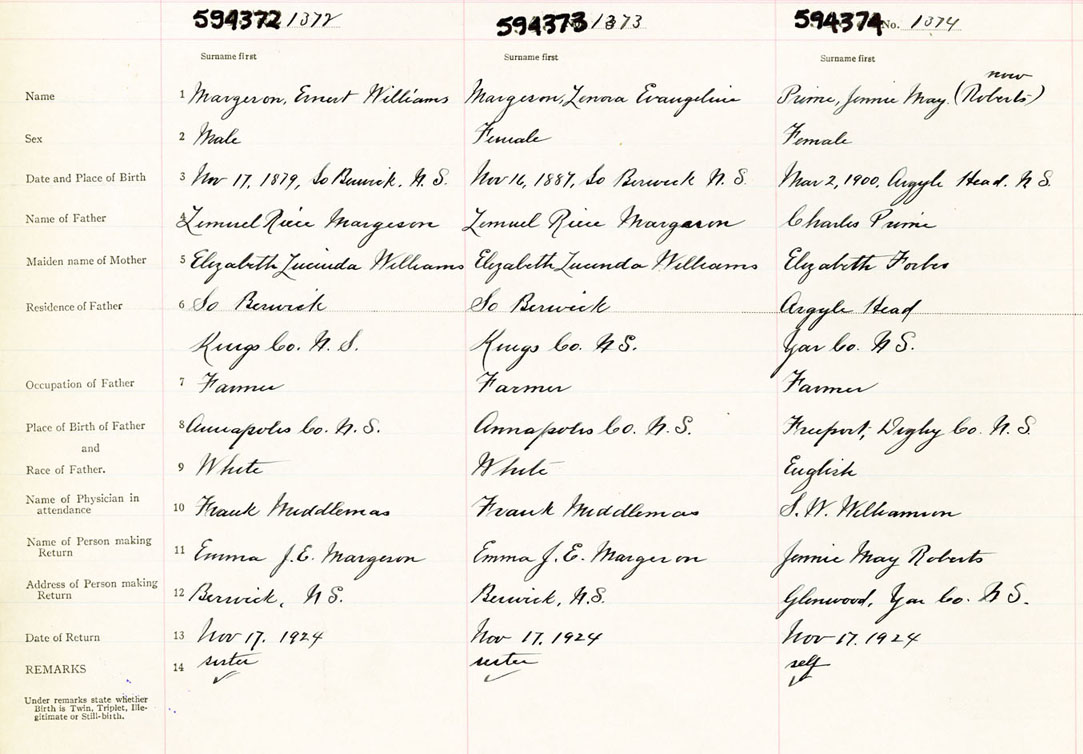 594372 1372 594373 No. 1373 594374 No. 1374
Surname first Surname first Surname first
now
Name 1 Margeson, Ernest Williams Margeson, Lenora Evangeline Prime, Jennie May. (Roberts)
Sex 2 Male Female Female
Date and Place of Birth 3 Nov 17, 1879, So Berwick, N. S. Nov 16, 1887, So Berwick N. S. Mar 2, 1900, Argyle Head, N S.
Name of Father 4 Lemuel Riece Margeson Lemuel Riece Margeson Charles Prime
Maiden name of Mother 5 Elizabeth Lucinda Williams Elizabeth Lucinda Williams Elizabeth Forbes
Residence of Father 6 So Berwick So Berwick Argyle Head
Kings Co. N. S. Kings Co. N S. Yar Co. N S.
Occupation of Father 7 Farmer Farmer Farmer
Place of Birth of Father 8 Annapolis Co. N. S. Annapolis Co. N. S. Freeport, Digby Co. N. S.
and
Race of Father. 9 White White English
Name of Physician in attendance 10 Frank Middlemas Frank Middlemas S. W. Williamson
Name of Person making Return 11 Emma J. E. Margeson Emma J. E. Margeson Jennie May Roberts
Address of Person making Return 12 Berwick, N S. Berwick, N. S. Glenwood, Yar Co. N S.
Date of Return 13 Nov 17. 1924 Nov 17. 1924 Nov 17. 1924
REMARKS 14 sister sister self
Under remarks state whether
Birth is Twin, Triplet, Ille-
gitimate or Still-birth.